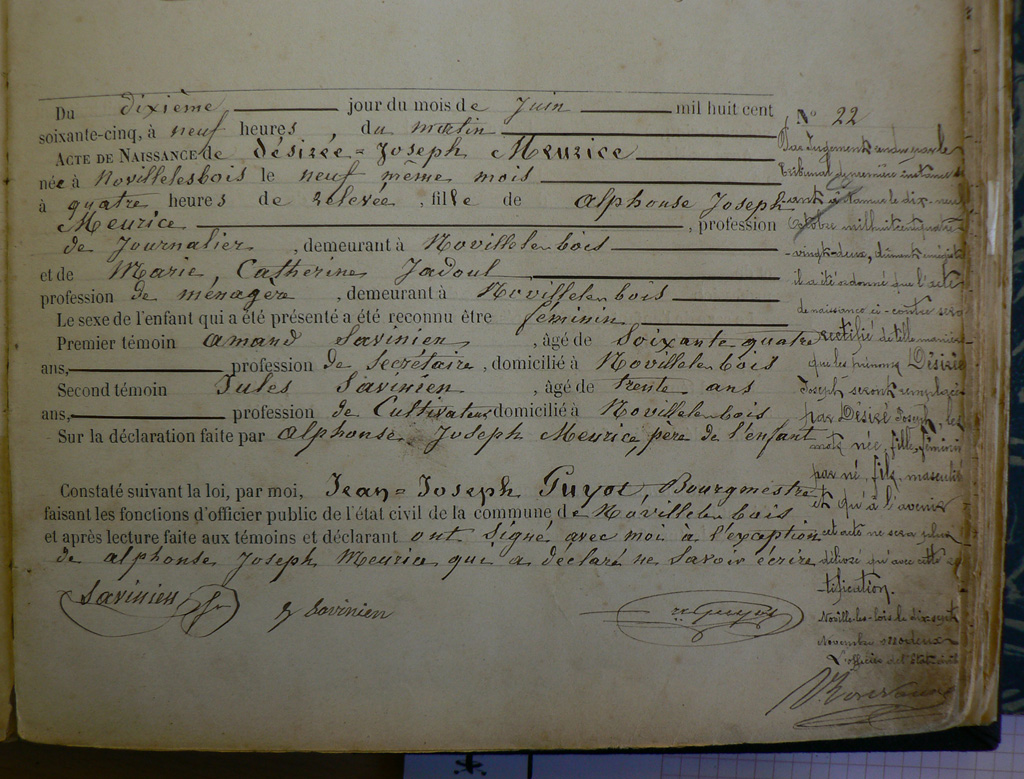 Du dixième jour du mois de Juin mil huit cent
soixante-cinq, à neuf heures, du matin
ACTE DE NAISSANCE de Désirée=Joseph Meurice
née à Novillelesbois le neuf même mois
à quatre heures de relevée, fille de Alphonse Joseph
Meurice, profession
de Journalier, demeurant à Novillelesbois
et de Marie, Catherine Jadoul
profession de ménagère, demeurant à Novillelesbois
Le sexe de l'enfant qui a été présenté a été reconnu être féminin
Premier témoin Amand Savinien, âgé de Soixante quatre
ans, profession de Secrétaire, domicilié à Novillelesbois
Second témoin Jules Savinien, âgé de trente ans
ans, profession de Cultivateur domicilié à Novillelesbois
Sur la déclaration faite par Alphonse Joseph Meurice, père de l'enfant
Constaté suivant la loi, par moi, Jean=Joseph Guyot, Bourgmestre
faisant les fonctions d'officier public de l'état civil de la commune de Novillelesbois
et après lecture faite aux témoins et déclarant ont signé avec moi à l'exception
de Alphonse Joseph Meurice qui a déclaré ne savoir écrire
Savinien
J Savinien
Guyot
N° 22
Par Jugement rendu par le
tribunal de première instance
séant à Namur le dix-neuf
Octobre mil huit cent quatre
-vingt-deux, dûment enregistré
il a été ordonné que l'acte
de naissance ci-contre sera
rectifié de telle manière
que les prénoms Désirée
Joseph seront remplacés
par Désiré Joseph, les
mots née, fille, féminin
par né, fils, masculin
et qu'à l'avenir
cet acte ne sera plus
délivré qu'avec cette rec
-tification.
Noville-les-bois le dix sept
Novembre
L'officier de l'Etat civil